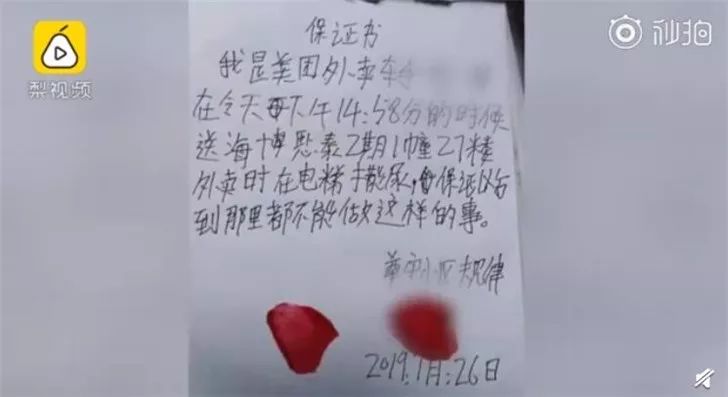 梨视频
秒拍
保证书
我是美团外卖
在今天下午14:58分的时候
送海博熙泰2期1幢27楼
外卖时在电梯撒尿,保证以后
到那里都不能做这样的事。
小区规律
2019.7月.26日